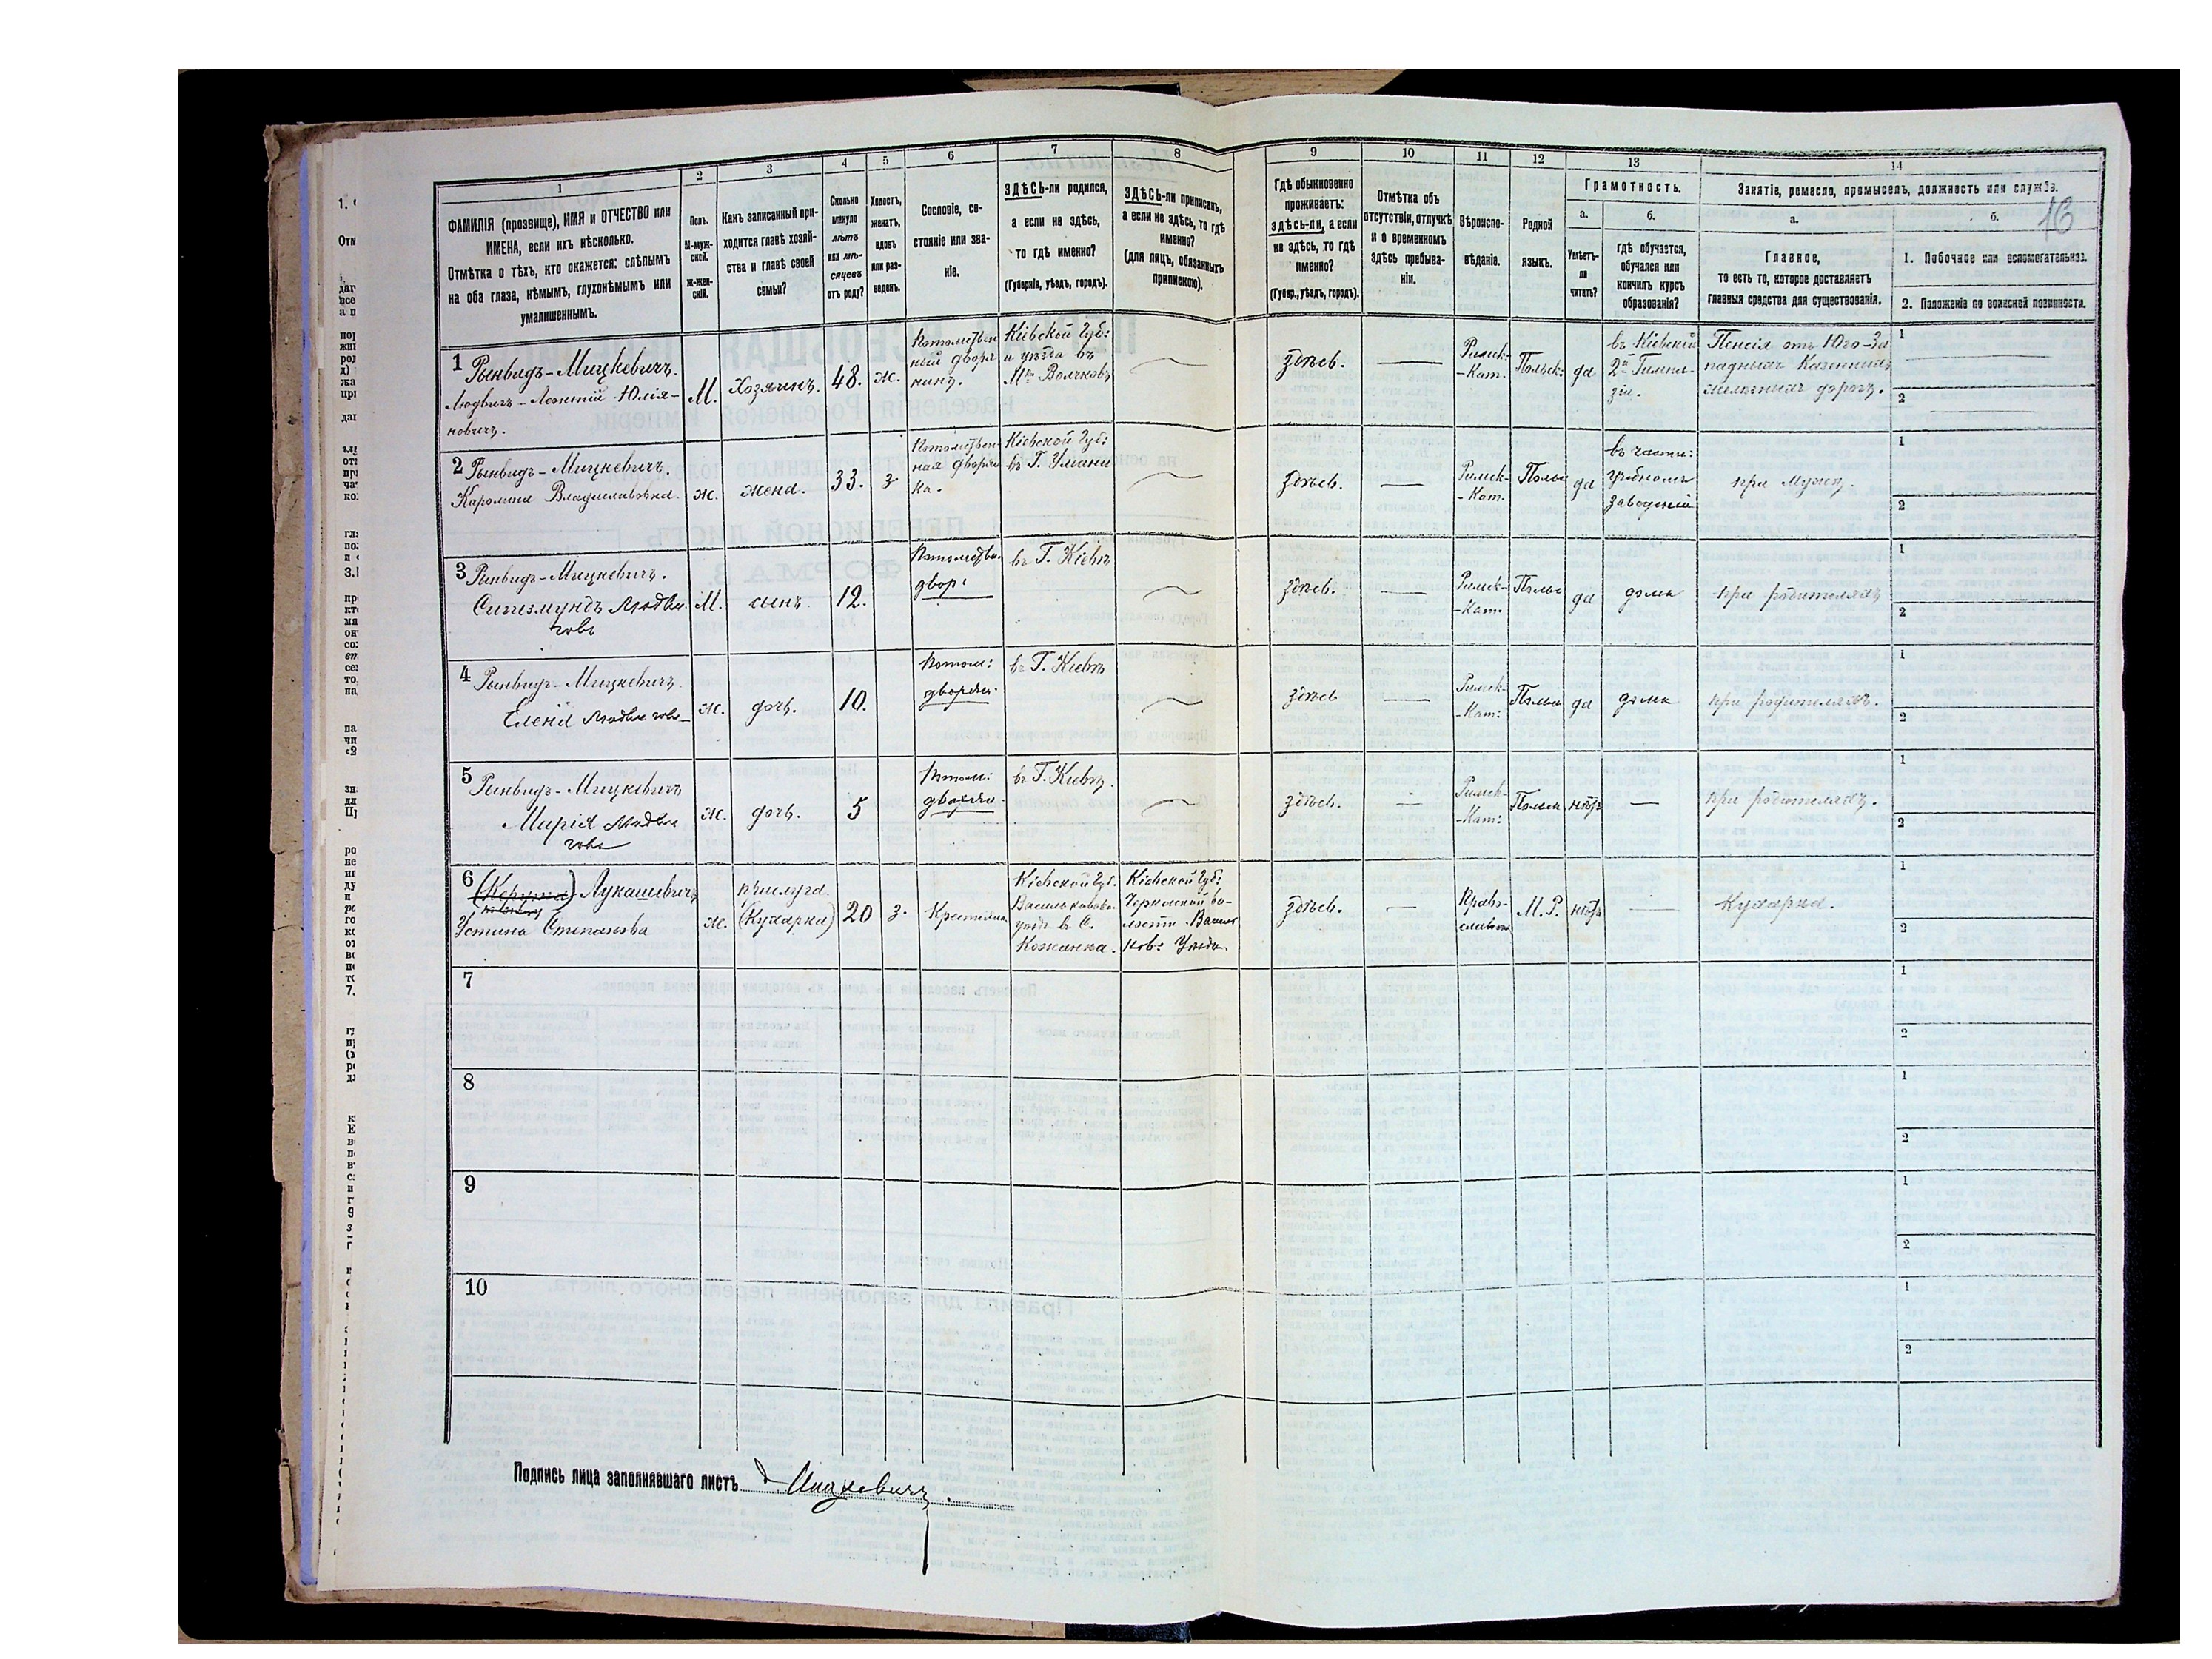 1 2 3 4 5 6 7 8 9 10 11 12 13 14
16
ФАМИЛІЯ (прозвище), ИМЯ и ОТЧЕСТВО или
ИМЕНА, если ихъ нѣсколько.
Отмѣтка о тѣхъ, кто окажется: слѣпымъ
на оба глаза, нѣмымъ, глухонѣмымъ или
умалишеннымъ.
Полъ.
М-муж-
ской.
Ж-жен-
скій.
Какъ записанный при-
ходится главѣ хозяй-
ства и главѣ своей
семьи?
Сколько
минуло
лѣтъ
или мѣ-
сяцевъ
отъ роду?
Холостъ,
женатъ,
вдовъ
или раз-
веденъ.
Сословіе, со-
стояніе или зва-
ніе.
ЗДѢСЬ-ли родился,
а если не здѣсь,
то гдѣ именно?
(Губернія, уѣздъ, городъ).
ЗДѢСЬ-ли приписанъ,
а если не здѣсь, то гдѣ
именно?
(для лицъ, обязанныхъ
припискою).
Гдѣ обыкновенно
проживаетъ:
здѣсь-ли, а если
не здѣсь, то гдѣ
именно?
(Губер., уѣздъ, городъ).
Отмѣтка объ
отсутствіи, отлучкѣ
и о временномъ
здѣсь пребыва-
ніи.
Вѣроиспо-
вѣданіе.
Родной
языкъ.
Грамотность.
а.
Умѣетъ-
ли
читать?
б.
гдѣ обучается,
обучался или
кончилъ курсъ
образованія?
Занятіе, ремесло, промыселъ, должность или служба.
а.
Главное,
то есть то, которое доставляетъ
главныя средства для существованія.
б.
1. Побочное или вспомогательное.
2. Положеніе по воинской повинности.
1 Рынвидъ-Мицкевичъ.
Людвигъ-Леонтій Юлія-
новичъ.
М.
Хозяинъ.
48.
ж.
Потомствен
ный дворя
нинъ.
Кіевской Губ:
и уѣзда въ
М. Волчковъ
здѣсь.
Римск-
-Кат.
Польск:
да
въ Кіевской
2й Гимна-
зіи.
Пенсія отъ Юго-За
падныхъ Казенныхъ
желѣзныхъ дорогъ.
1
2
2 Рынвидъ-Мицкевичъ.
Каролина Владиславовна.
ж.
жена.
33.
з.
Потомствен-
ная дворян
ка.
Кіевской Губ:
въ Г. Умани
здѣсь.
Римск-
-Кат.
Польс
да
въ частн:
учебномъ
заведеніи
при мужѣ.
1
2
3 Рынвидъ-Мицкевичъ.
Сигизмундъ Людви
говъ
М.
сынъ.
12.
Потомствен.
двор:
въ Г. Кіевѣ
здѣсь.
Римск-
-Кат.
Польс
да
дома
при родителяхъ
1
2
4 Рынвидъ-Мицкевичъ.
Елена Людвигов-
ж.
дочь.
10.
Потом:
дворян.
въ Г. Кіевѣ
здѣсь
Римск-
-Кат:
Польск
да
дома
при родителяхъ.
1
2
5 Рынвидъ-Мицкевичъ
Марія Людви
гова
ж.
дочь.
5
Потом:
дворян.
въ Г. Кіевѣ.
здѣсь.
Римск-
-Кат:
Польск
нѣтъ
при родителяхъ.
1
2
6 Лукашевичъ
Устина Степанова
ж.
прислуга.
(Кухарка)
20
з.
Крестьянка
Кіевской Губ.
Васильковска.
уѣзд. въ С.
Кожанка.
Кіевской Губ:
во-
лости Василь
ков: Уѣзда.
здѣсь.
Право-
славная
М. Р.
нѣтъ
Кухарка.
1
2
7
1
2
8
1
2
9
1
2
10
1
2
Подпись лица заполнявшаго листъ Мицкевичъ.